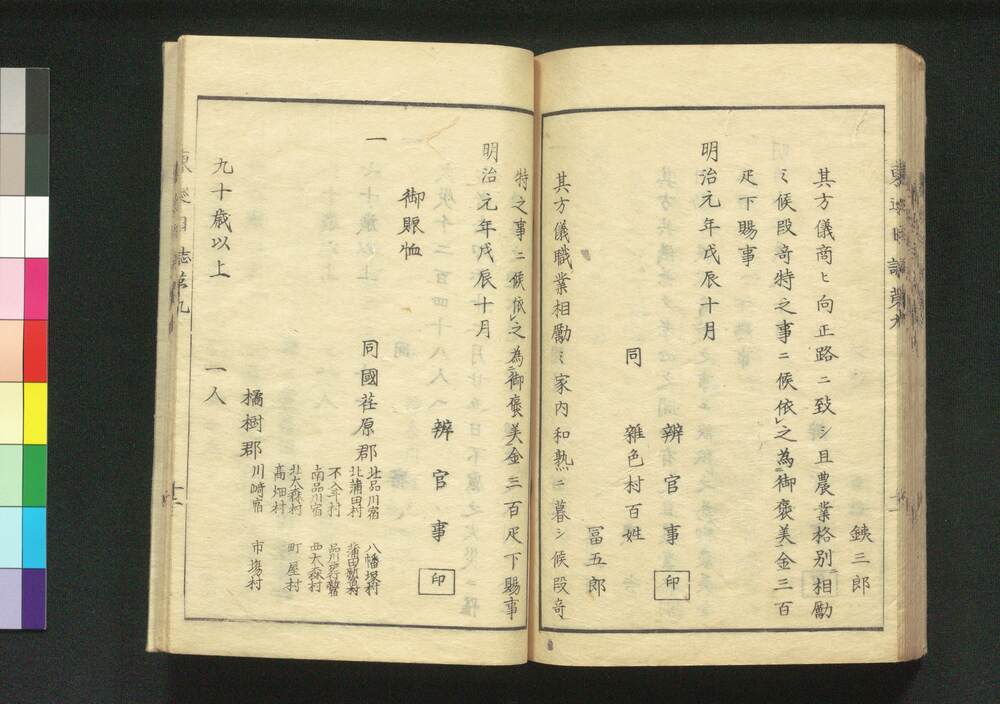 銕三郎
其方儀商ヒ向正路ニ致シ且農業格別相勵
ミ候段竒特之事ニ候依之為御褒美金三百
疋下賜事
明治元年戊辰十月
辨官事 印
同 雜色村百姓
冨五郎
其方儀職業相勵ミ家内和熟ニ暮シ候段竒
特之事ニ候依之為御褒美金三百疋下賜事
明治元年戊辰十月
辨官事 印
御賑恤
一
同國荏原郡
北品川宿 八幡塚村
北蒲田村 蒲田新宿村
不入斗村
南品川宿 西大森村
北大森村 町屋村
高畑村
橘樹郡
川崎宿 市塲村
九十歳以上 一人
東巡日誌第九
十二